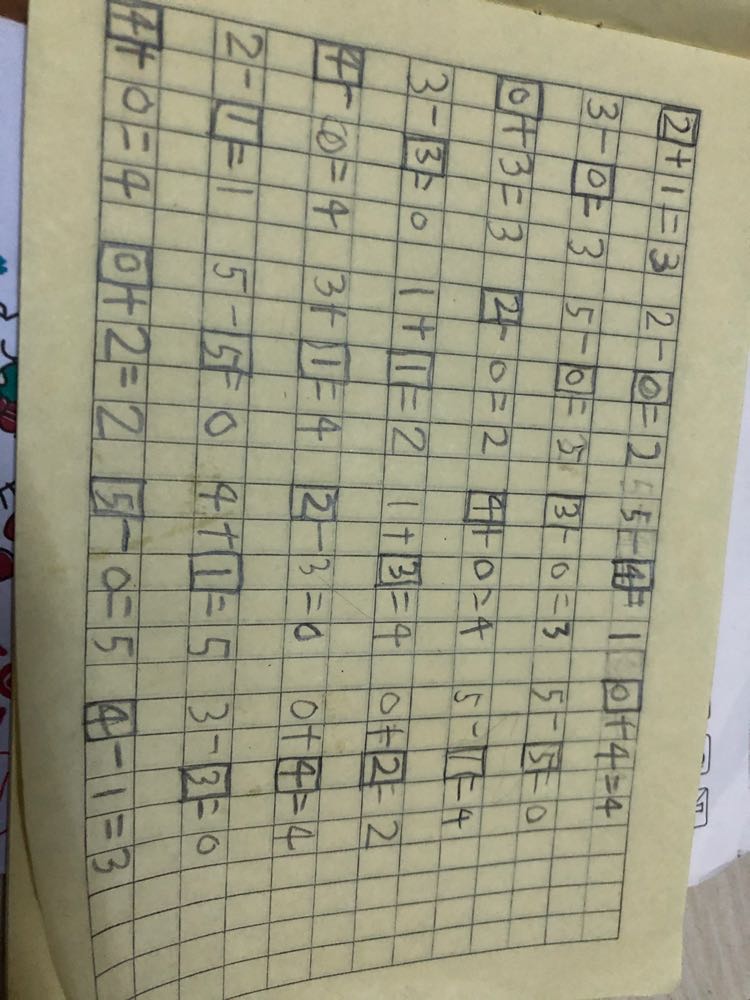 2+1=3 2-0=2 5-4=1 0+4=4
3-0=3 5-0=5 3-0=3 5-5=0
0+3=3 2-0=2 4+0=4 5-1=4
3-3=0 1+1=2 1+3=4 0+2=2
4-0=4 3+1=4 2-3=0 0+4=4
2-1=1 5-5=0 4+1=5 3-3=0
4+0=4 0+2=2 5-0=5 4-1=3